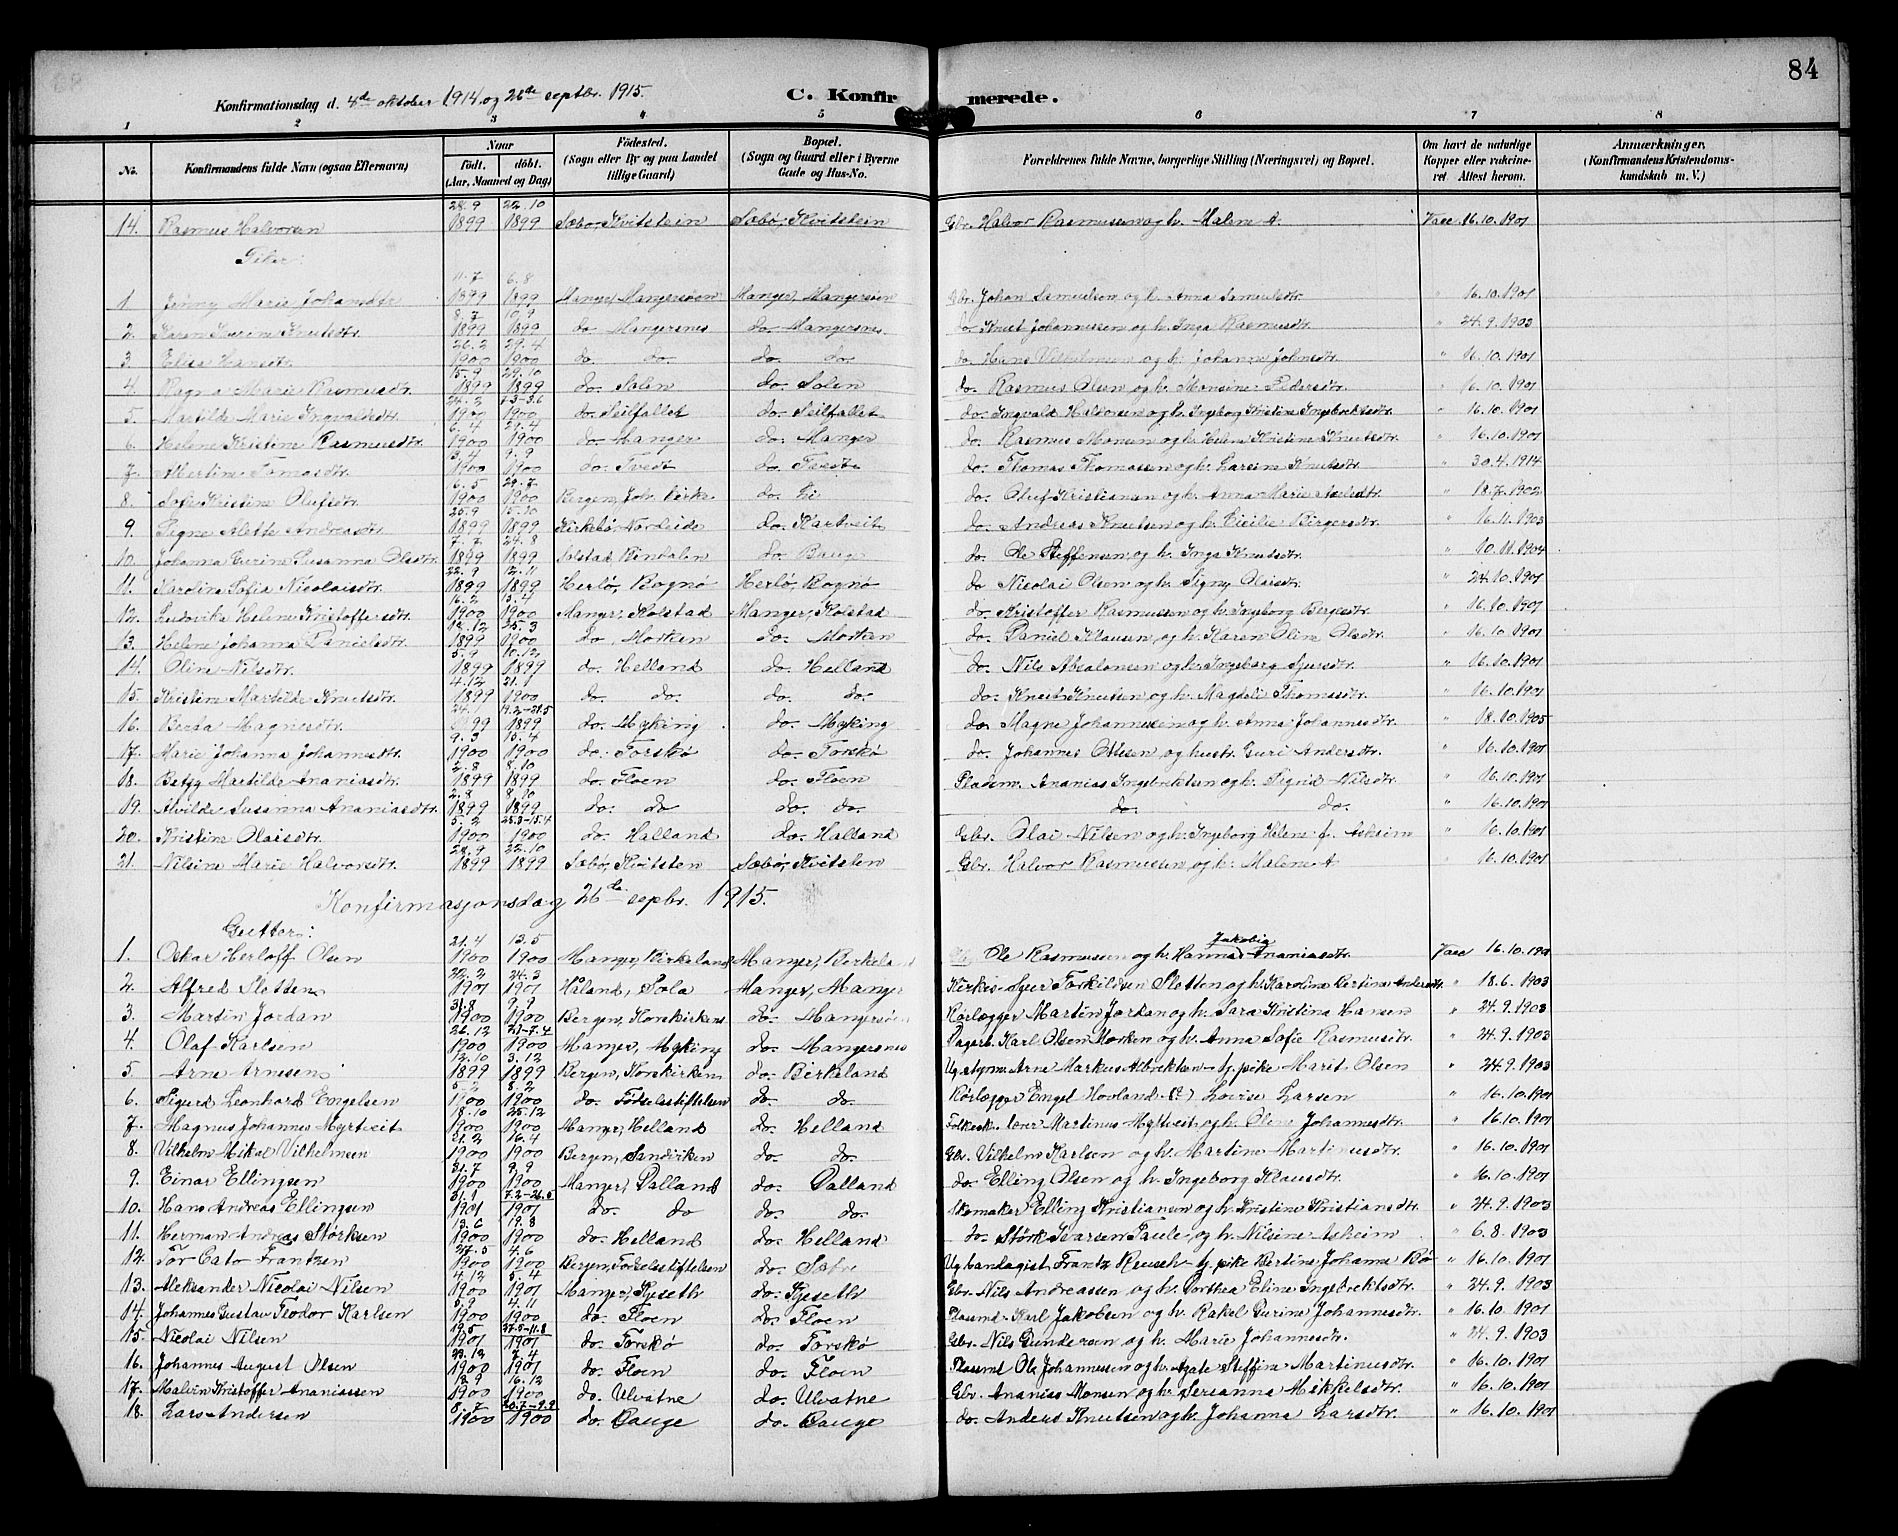 84
Konfirmationsdag d. 4de oktober 1914 og 26te septbr. 1915. C. Konfirmerede.
1 2 3 4 5 6 7 8
No. Konfirmandens fulde Navn (ogsaa Efternavn) Naar födt. döbt. (Aar, Maaned og Dag) Födested. (Sogn eller By og paa Landet tillige Gaard) Bopæl. (Sogn og Gaard eller i Byerne Gade og Hus-No. Forældrenes fulde Navne, borgerlige Stilling (Næringsvei) og Bopæl. Om havt de naturlige Kopper eller vakcineret. Attest herom. Anmærkninger. (Konfirmandens Kristendomskundskab m. V.)
14. Rasmus Halvorsen 28.9 1899 22.10 1899 Sæbø, Kvitstein Sæbø, Kvitstein Gbr. Halvor Rasmussen og h. Malene A. Vacc. 16.10.1901
Piker:
1. Jenny Marie Johansdtr. 11.7 1899 6.8 1899 Manger, Mangersøen Manger, Mangersøen Gbr. Johan Samuelsen og h. Anna Samuelsdtr. " 16.10.1901
2. Karen Gurine Knutsdtr. 8.7 1899 10.9 1899 do Mangersnes do. Mangersnes do. Knut Johannessen og h. Inga Rasmusdtr. " 24.9.1903
3. Elisa Hansdtr. 26.2 1900 29.4 1900 do do do. do. do. Hans Vilhelmsen og h. Johanna Johnsdtr. " 16.10.1901
4. Ragna Marie Rasmusdtr. 15.9 1899 29.10 1899 do. Solen do. Solen do. Rasmus Olsen og h. Monsine Pedersdtr. " 16.10.1901
5. Martilde Marie Ingvaldsdtr. 24.2 1900 1900 do. Seilfallet do. Seilfallet do. Ingvald Halvorsen og h. Ingeborg Kristine Ingebrektsdtr. " 16.10.1901
6. Helene Kristine Rasmusdtr. 6.4 1900 21.4 1900 do. Manger do. Manger do. Rasmus Monsen og h. Helene Kristine Knutsdtr. " 16.10.1901
7. Mertine Tomasdtr. 13.4 1900 9.9 1900 do. Tvedt do. Tvedt do. Thomas Thomassen og h. Larsine Knutsdtr. " 30.4.1914
8. Sofie Kristine Olufsdtr. 6.5 1900 29.7 1900 Bergen, Joh. kirke do. Lie do. Oluf Kristiansen og h. Anna Marie Akselsdtr. " 18.7.1902
9. Signe Alette Andreasdtr. 25.9 1899 15.10 1899 Kirkebø Nordeide do. Kartveit do. Andreas Knutsen og h. Cicilie Birgersdtr. " 16.11.1903
10. Johanna Gurine Susanna Olsdtr. 7.7 1899 24.8 1899 Solstad Bindalen do. Bauge do. Ole Steffensen og h. Inga Knutsdtr. " 10.11.1904
11. Karolina Sofia Nicolaisdtr. 22.9 1899 12.11 1899 Herlø, Bognø Herlø, Bognø do Nicolai Olsen og h. Signy Olaisdtr. " 24.10.1901
12. Ludovika Helene Kristoffersdtr. 16.2 1900 15.4 1900 Manger, Kolstad Manger, Kolstad do. Kristoffer Rasmussen og h. Ingeborg Bergesdtr. " 16.10.1901
13. Helene Johanna Danielsdtr. 18.12 1899 25.3 1900 do. Morken do. Morken do. Daniel Klausen og h. Karen Oline Olsdtr. " 16.10.1901
14. Oline Nilsdtr. 5.9 1899 10.12 1899 do. Helland do. Helland do. Nils Absalonsen og h. Ingeborg Sjursdtr. " 16.10.1901
15. Kristine Martilde Knutsdtr. 4.12 1899 21.1 1900 do. do. do. do. do. Knut Knutsen og h. Magdeli Thomasdtr. " 16.10.1901
16. Berta Magnesdtr. 24. 1899 19.2-21.5 1899 do. Myking do. Myking do. Magne Johannessen og h. Anna Johannesdtr. " 18.10.1905
17. Marie Johanna Johannesdtr. 9.3 1900 15.4 1900 do. Toskø do. Toskø do. Johannes Olsen og hustr. Guri Andersdtr. " 16.10.1901
18. Betzy Martilde Ananiasdtr. 2.8 1899 8.10 1899 do. Floen do. Floen Pladsm. Ananias Ingebrektsen og h. Sigrid Nilsdtr. " 16.10.1901
19. Alvilde Susanna Ananiasdtr. 2.8 1899 8.10 1899 do. do do. do. do. do. " 16.10.1901
20. Kristine Olaisdtr. 5.2 1900 25.3-15.4 1900 do. Halland do. Halland Gbr. Olai Nilsen og h. Ingeborg Helene f. Askeim " 16.10.1901
21. Nilsine Marie Halvorsdtr. 28.9 1899 22.10 1899 Sæbø, Kvitsten Sæbø, Kvitsten Gbr. Halvor Rasmussen og h. Malene A. " 16.10.1901
Konfirmasjonsdag 26de sepbr. 1915.
Gutter:
1. Oskar Herloff Olsen 21.4 1900 13.5 1900 Manger, Birkeland Manger, Birkeland Ole Rasmussen og h. Hanna Jakobia Ananiasdtr. Vacc. 16.10.1901
2. Alfred Slotten 22.2 1901 24.3 1901 Håland, Sola Manger, Manger Kirkes. Sjur Torkildsen Slotten og h. Karoline Bertine Andersdtr. " 18.6.1903
3. Martin Jordan 31.8 1900 9.9 1900 Bergen, Korskirken do. Mangersøen Rørlægger Martin Jordan og h. Sara Kristina Hansen " 24.9.1903
4. Olaf Karlsen 26.12 1900 1900 Manger, Myking do. Mangersnes Dagarb. Karl Olsen Morken og h. Anna Sofie Rasmusdtr. " 24.9.1903
5. Arne Arnesen 12.10 1899 3.12 1899 Bergen, Korskirken do. Birkeland Ug. styrm. Arne Markus Albrektsen - ug. pike Marit Olsen " 24.9.1903
6. Sigurd Leonhard Engelsen 5.2 1900 8.2 1900 do. Fødselsstiftelsen do. do. Rørlægger Engel Hovland - Lovise Larsen " 16.10.1901
7. Magnus Johannes Myrtveit 18.10 1900 25.12 1900 Manger, Helland do. Helland Folkesk. lærer Martinus Myrtveit og h. Oline Johannesdtr. " 16.10.1901
8. Vilhelm Mikal Vilhelmsen 21.2 1900 16.4 1900 Bergen, Sandviken do. do. Gbr. Vilhelm Karlsen og h. Martine Martinusdtr. " 16.10.1901
9. Einar Ellingsen 21.7 1900 9.9 1900 Manger, Dalland do. Dalland do. Elling Olsen og h. Ingeborg Klausdtr. " 16.10.1901
10. Hans Andreas Ellingsen 31.1 1901 7.2-26.5 1901 do. do do. do. Skomaker Elling Kristiansen og h. Kristine Kristiansdtr. " 24.9.1903
11. Herman Andreas Størksen 13.6 1900 19.8 1900 do. Helland do. Helland do. Størk Ivarsen Taule og h. Nilsine Askeim " 6.8.1903
12. Tor Cato Frantzen 27.5 1900 4.6 1900 Bergen, Fødselsstiftelsen do. Ug. bandagist Frantz Reusch - ug. pike Bertine Johanna Bø " 16.10.1901
13. Aleksander Nicolai Nilsen 4.12 1900 5.4 1901 Manger, Gjeseth do. Gjeseth Gbr. Nils Andreassen og h. Dorthea Eline Ingebrektsdtr. " 24.9.1903
14. Johannes Gustav Teodor Karlsen 5.9 1900 4.11 1900 do. Floen do. Floen Plasmd. Karl Jakobsen og h. Rakel Gurine Johannesdtr. " 16.10.1901
15. Nicolai Nilsen 19.5 1901 27.5-11.8 1901 do. Toskø do. Toskø Gbr. Nils Gundersen og h. Marie Johannesdtr. " 24.9.1903
16. Johannes August Olsen 23.12 1900 2.4 1901 do. Floen do. Floen Plasmd. Ole Johannessen og h. Agate Steffine Martinusdtr. " 16.10.1901
17. Malvin Kristoffer Ananiassen 1900 16.12 1900 do. Ulvatne do. Ulvatne Gbr. Ananias Monsen og h. Serianna Mikkelsdtr. " 16.10.1901
18. Lars Andersen 8.7 1900 20.7-9.9 1900 do. Bauge do. Bauge do. Anders Knutsen og h. Johanna Larsdtr. " 16.10.1901